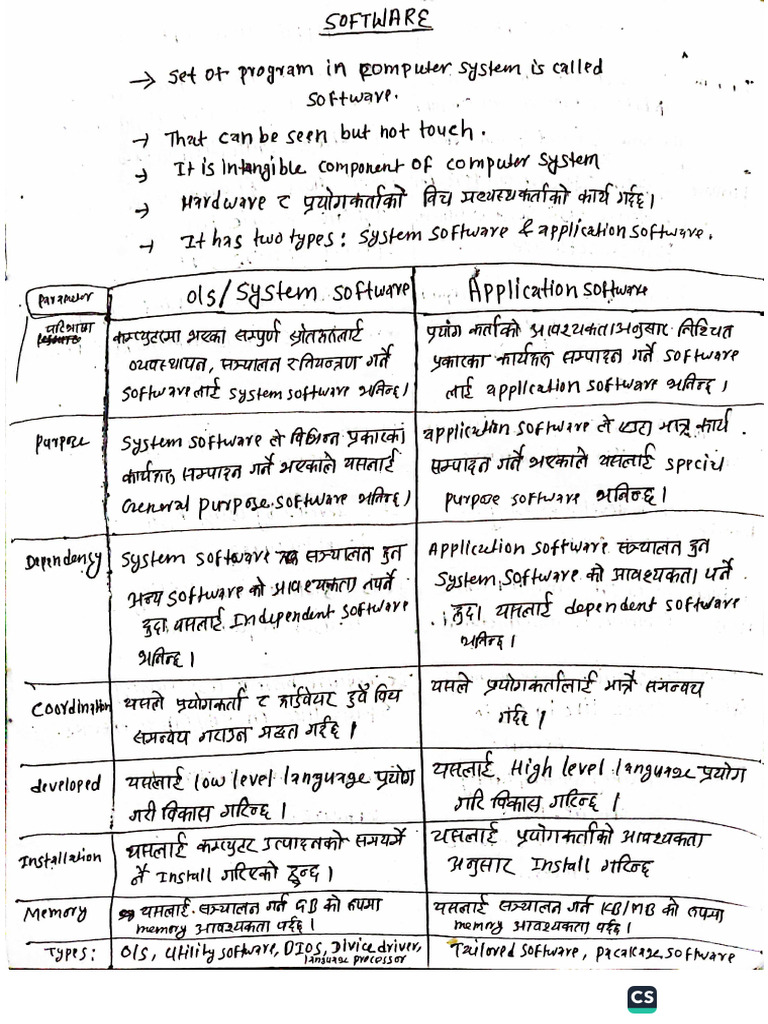 SOFTWARE
→ Set of program in computer system is called
software.
→ That can be seen but not touch.
→ It is Intangible component of computer system
→ Hardware र प्रयोगकर्ताको विच मध्यस्थकर्ताको कार्य गर्दछ।
→ It has two types: system software & application software.
Parameter
O/S/System software
Application software
परिभाषा
कम्प्युटरमा भएका सम्पुर्ण स्रोतहरुलाई
व्यवस्थापन, सञ्चालन र नियन्त्रण गर्ने
software लाई system software भनिन्छ।
प्रयोग कर्ताको आवश्यकता अनुसार निश्चित
प्रकारका कार्यहरु सम्पादन गर्ने software
लाई application software भनिन्छ।
Purpose
System software ले विभिन्न प्रकारका
कार्यहरु सम्पादन गर्ने भएकाले यसलाई
General purpose software भनिन्छ।
application software ले एउटा मात्र कार्य
सम्पादन गर्ने भएकाले यसलाई special
purpose software भनिन्छ।
Dependency
System software सञ्चालत हुन
अन्य software को आवश्यकता नपर्ने
हुदा यसलाई Independent software
भनिन्छ।
Application software सञ्चालत हुन
system software को आवश्यकता पर्ने
हुदा यसलाई dependent software
भनिन्छ।
Coordination
यसले प्रयोगकर्ता र हार्डवेयर दुवै विच
समन्वय गराउन मद्दत गर्दछ।
यसले प्रयोगकर्तालाई मात्रै समन्वय
गर्दछ।
developed
यसलाई low level language प्रयोग
गरी विकास गरिन्छ।
यसलाई High level language प्रयोग
गरि विकास गरिन्छ।
Installation
यसलाई कम्प्युटर उत्पादनको समयमै
नै Install गरिएको हुन्छ।
यसलाई प्रयोगकर्ताको आवश्यकता
अनुसार Install गरिन्छ
Memory
यसलाई सञ्चालन गर्न GB को रुपमा
memory आवश्यकता पर्दछ।
यसलाई सञ्चालन गर्न KB/MB को रुपमा
memory आवश्यकता पर्दछ।
Types:
O/S, Utility software, BIOS, Divice driver,
language processor
Tailored software, pacakage software
CS